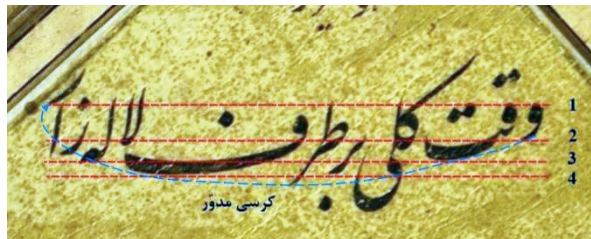 وقت کلی بر طرف لاله زار
1
2
3
4
کرسی مدوّر